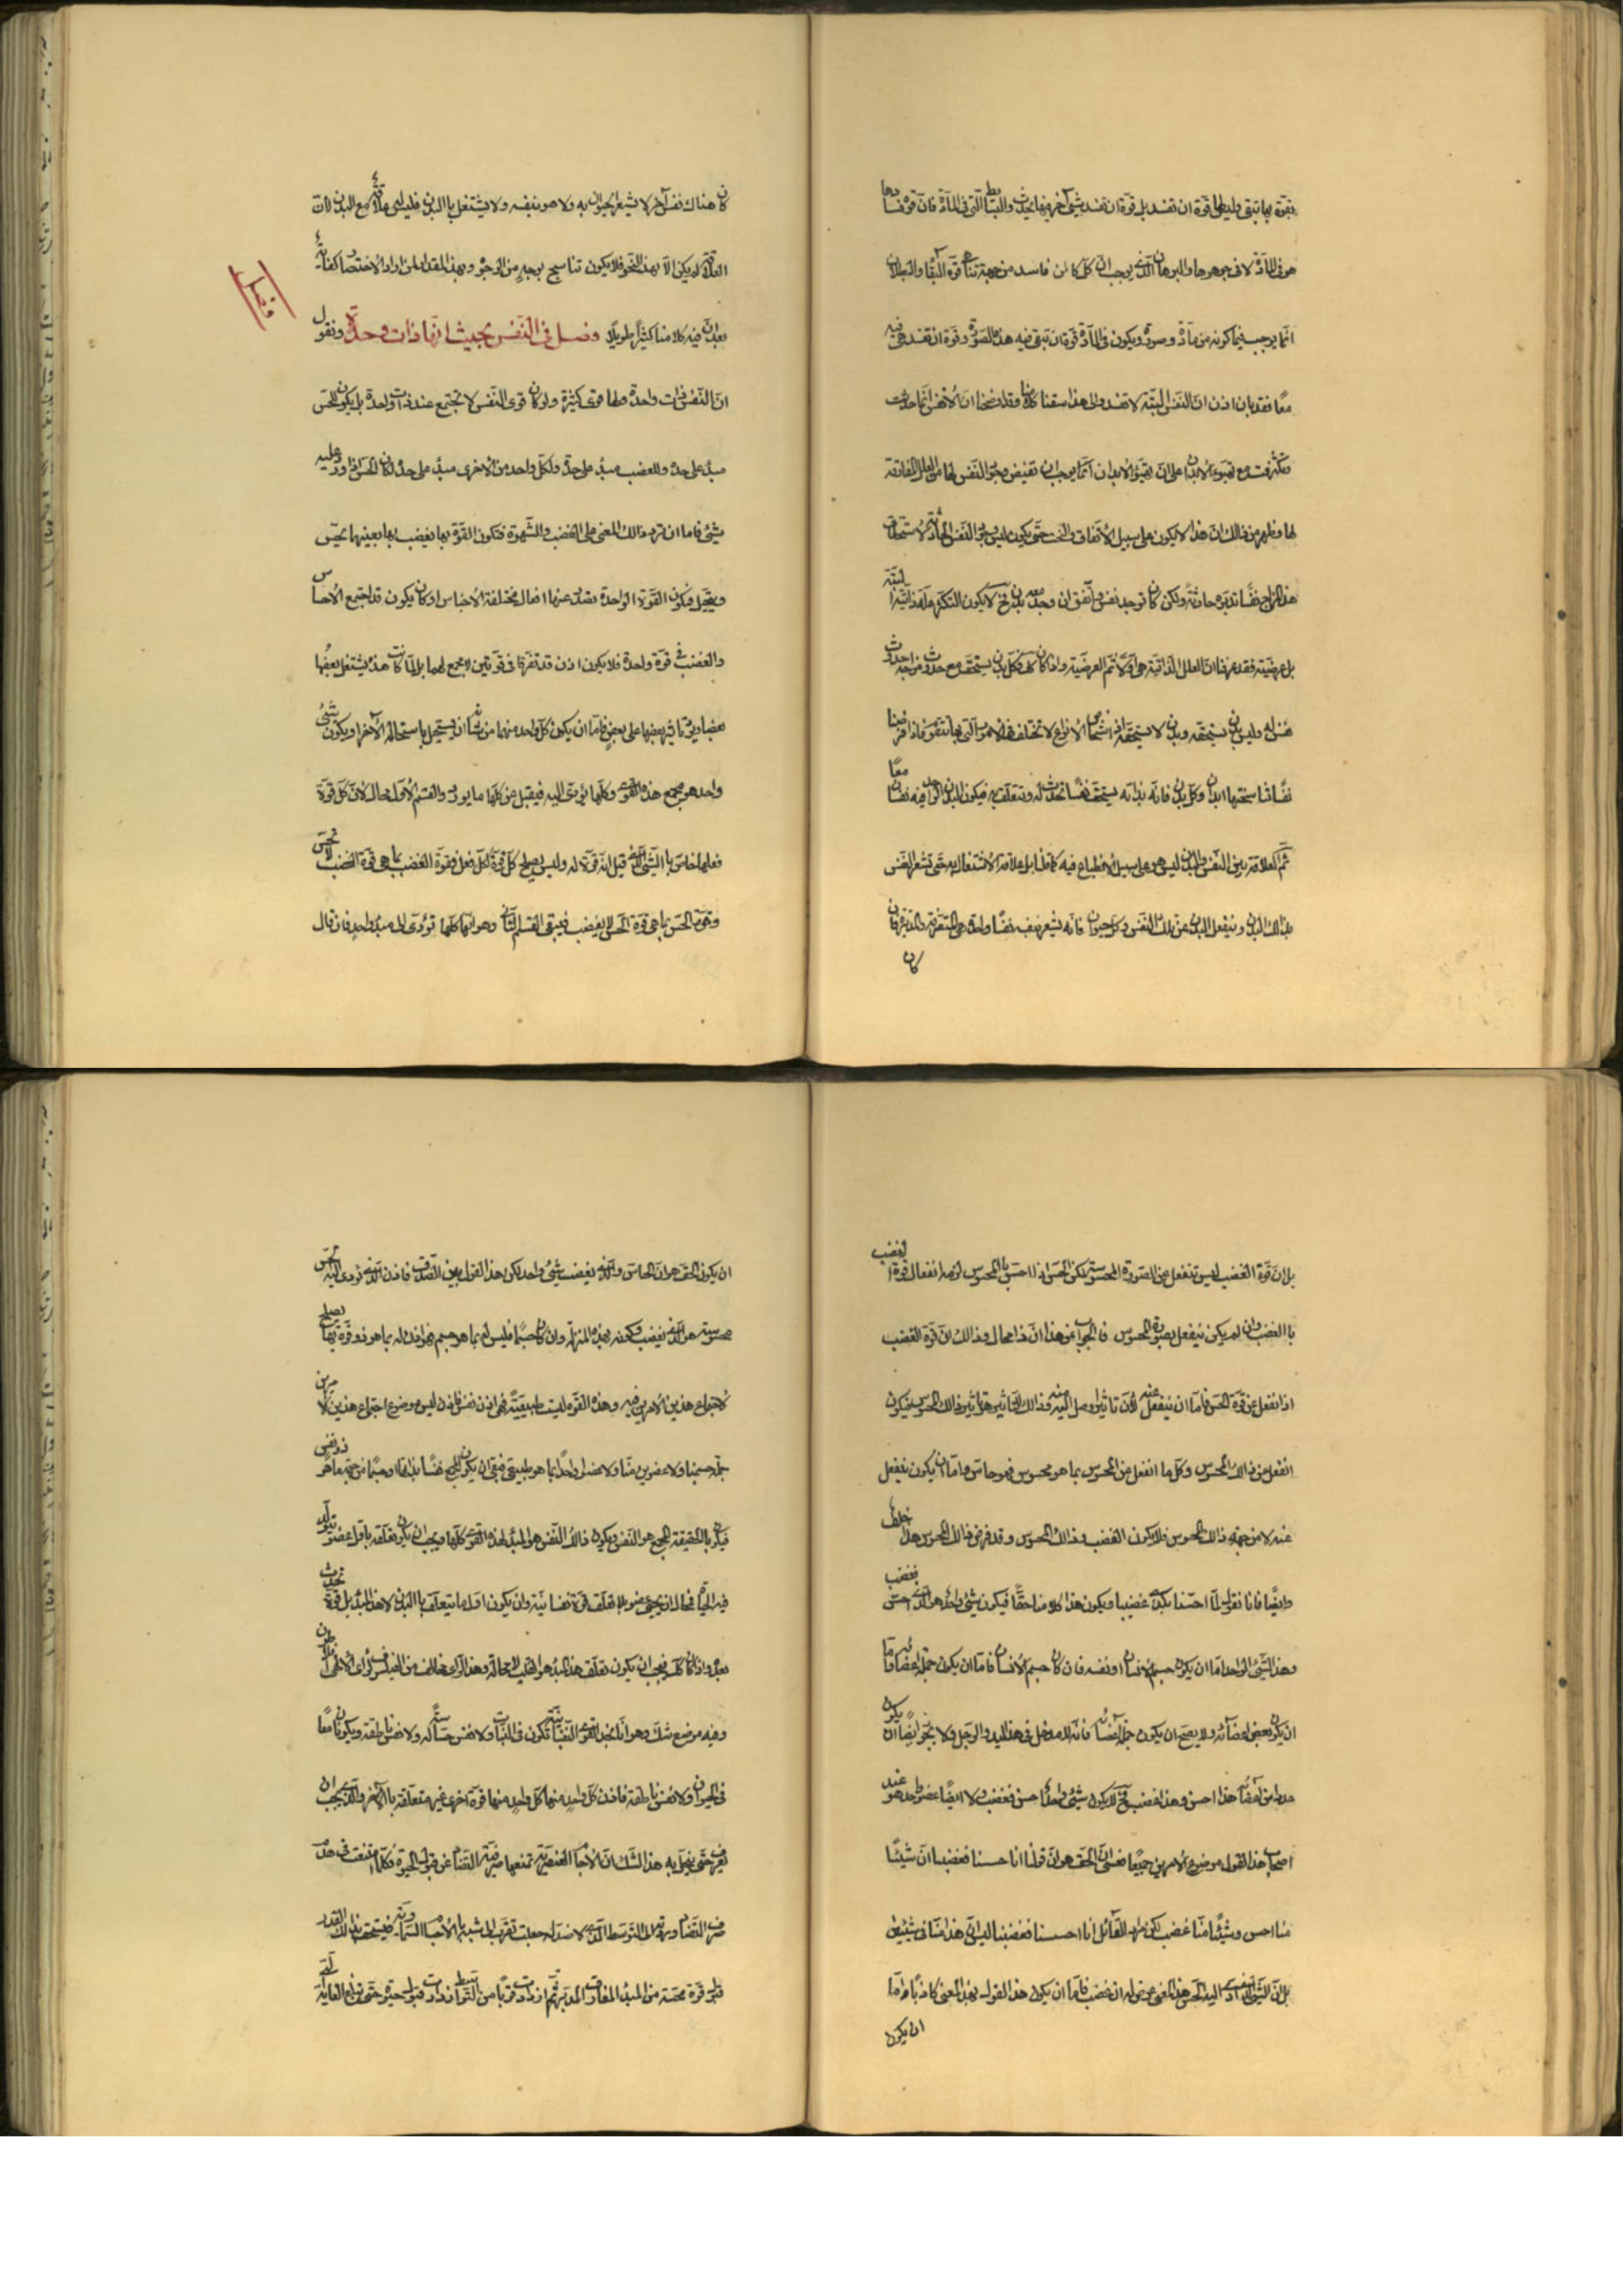 بقوة بها تبقى وليس لها قوة ان تفسد بل قوة ان تفسد شئ آخر فيها يحدث والبسائط التى فى المادة فان قوة فسادها
هو فى المادة لا فى جوهرها والبرهان الذى يوجب ان كل كائن فاسد من جهة تناهى قوة البقاء والبطلان
انما يوجب فيما كونه من مادة وصورة ويكون فى المادة قوة ان تبقى فيه هذه الصورة وقوة ان تفسد هى فيه
معًا فقد بان اذن ان النفس البتة لا تفسد والى هذا سقنا كلامنا وقد اوضحنا ان الانفس انما حدثت
وتكثرت مع تهيؤ الابدان على ان تهيؤ الابدان انما يوجب ان تفيض وجود النفس لها من العلل المفارقة
لها وظهر من ذالك ان هذا لا يكون على سبيل الاتفاق والبخت حتى يكون ليس وجود النفس الحادثة لاستحقاق
هذا المزاج نفسًا تدبره حادثة ولكن كان توجد نفس واتفق ان وجد معه بدن فح لا يكون للتكثر علة ذاتية البتة
بل عرضية فقد عرفنا ان العلل الذاتية هى اولًا ثم العرضية واذا كان كك فكل بدن يستحق مع حدوث مزاجه حدوث
نفس له وليس بدن يستحقه وبدن لا يستحقه اذ اشخاص الانواع لا تختلف فى الامور التى بها تتقوم فاذا فرضنا
نفسًا تناسختها ابدان وكل بدن فانه بذاته يستحق نفسًا تحدث له وتتعلق به فيكون البدن الواحد فيه نفسان معًا
ثم العلاقة بين النفس والبدن ليس هو على سبيل الانطباع فيه كما قلنا بل علاقة الاشتغال به حتى تشعر النفس
بذالك البدن وينفعل البدن عن تلك النفس وكل حيوان فانه يشعر نفسه نفسًا واحدة هى المتصرفة والمدبرة فان
كان
كان هناك نفس آخر لا يشعر الحيوان به ولا هو بنفسه ولا يشتغل با البدن فليس له علاقة مع البدن لان
العلاقة لم يكن الا بهذا النحو فلا يكون تناسخ بوجهٍ من الوجوه وبهذا المقدار لمن اراد الاختصار كفاية
بعد ان فيه كلامنا كثيرًا طويلًا وفصل فى النفس بحيث انها ذات واحدة ونقول
ان النفس ذات واحدة ولها قوى كثيرة ولو كان قوى النفس لا تجتمع عند ذات واحدة بل يكون للحس
مبدء على حدة وللغضب مبدء على حدة ولكل واحد من الاخرى مبدء على حدة لكان الحس اذا ورد عليه
شئ فاما ان ترد ذالك المعنى على الغضب والشهوة فتكون القوة بها يغضب بها بعينها يحس
ويتخيل فيكون القوة الواحدة تصدر عنها افعال مختلفة الاجناس او كان يكون قد اجتمع الاحساس
والغضب فى قوة واحدة فلا يكون اذن قد تفرقا فى قوتين لا مجمع لهما بل لما كانت هذه يشتغل بعضها
بعضا ويرد تاثير بعضها على بعض فاما ان يكون كل واحد منهما من شانه ان يستحيل باستحالة الآخر او يكون شئ
واحد هو مجمع هذه القوى وكلها يؤدى اليه فيقبل عن كلها ما يورد والقسم الاول محال لان كل قوة
فعلها خاص با الشئ الذى قيل انه قوة له وليس يصلح كل قوة لكل فعل فقوة الغضب بما هى قوة الغضب لا تحس
وقوة الحس بما هى قوة الحس لا يغضب فيبقى القسم الثانى وهو انها كلها تؤدى الى مبدء واحد فان قال
بل ان قوة الغضب ليس تنفعل عن الصورة المحسوسة لكن الحس اذا احس با المحسوس لزمه انفعال قوة الغضب
با الغضب وان لم يكن ينفعل بصورة المحسوس فالجواب عن هذا ان ذا محال وذالك ان قوة الغضب
اذا انفعل عن قوة الحس فاما ان ينفعل عنه لان تاثيرا وصل اليه منه وذالك التاثير هو تاثير ذالك المحسوس فيكون
انفعل من ذالك المحسوس وكل ما انفعل من المحسوس بما هو محسوس فهو حاس واما ان يكون ينفعل
عنه لا من جهة ذالك المحسوس فلا يكون الغضب من ذالك المحسوس وقد فرض من ذالك المحسوس هذا خلف
وايضًا فانا نقول لما احسسنا بكذا غضبنا ويكون هذا كلامنا حقًا فيكون شئ واحد هو الذى احس فغضب
وهذا الشئ الواحد اما ان يكون جسم الانسان او نفسه فان كان جسم الانسان فاما ان يكون جملة اعضائه واما
ان يكون بعض اعضائه ولا يصح ان يكون جملة اعضائه فانه لا مدخل فى هذا لليد والرجل ولا يجوز ايضًا ان يكون
عضوان من اعضائه هذا احس وهذا غضب فح لا يكون شئ واحد احس فغضب ولا ايضًا عضو واحد هو عند
اصحاب هذا القول موضوع للامرين جميعًا فعسى ان الحق هو ان قولنا انا احسسنا فغضبنا ان شيئًا
منا احس وشيئًا منا غضب لكن مراد القائل انا احسسنا فغضبنا ليس ان هذا منا فى شيئين
بل ان الشئ الذى ادى اليه الحس هذا المعنى عرض له ان غضب فاما ان يكون هذا القول بهذا المعنى كاذبًا واما
ان يكون
ان يكون الحق هو ان الحاس والذى يغضب شئ واحد لكن هذا القول بين الصدق فاذن الذى تودى اليه الحس
محسوسة هو الذى يغضب وكونه بهذه المنزلة وان كان جسمًا فليس له بما هو جسم فهو اذن له بما هو ذو قوة بها يصلح
لاجتماع هذين الامرين فيه وهذه القوة ليست طبيعيةً فهى اذن نفس فاذن ليس موضوع اجتماع هذين الامرين
جملة جسمنا ولا عضوين منا ولا عضوا واحدًا بما هو طبيعى فبقى ان يكون المجمع نفسًا بذاتها او جسمًا من حيث هو ذو نفس
فيكون با الحقيقة المجمع هو النفس ويكون ذالك النفس هو المبدء لهذه القوى كلها ويجب ان يكون تعلقه باول عضو يتولد
فيه الحياة فمحال ان يحيى عضو بلا تعلق قوة نفسانية به وان يكون اول ما يتعلق با البدن لا هذا المبدء بل قوة تحدث
بعده واذا كان كك فيجب ان يكون تعلق هذا المبدء هو القلب لا محالة وهذا الراى مخالف من الفيلسوف لراى الالهى افلاطون
وفيه موضع شك وهو انا نجد القوى النباتية تكون فى النبات ولا نفس حساسة له ولا نفس ناطقة ويكونان معًا
فى الحيوان ولا نفس ناطقة فاذن كل واحد منها كل واحد منها قوة اخرى غير متعلقة با الآخر والذى يجب ان
يعرف حتى ينحل به هذا الشك ان الاجسام العنصرية تمنعها صرفية التضاد عن قبول الحيوة فكلما امعنت فى هدم
صرف التضاد ورده الى التوسط الذى لا ضد له جعلت تقرب الى شبه با الاجسام السماوية فيستحق بذالك القدر
قبول قوة محيية من المبدء المفارق المدبر ثم ازدادت قربًا من التوسط ازدادت قبول حيوة حتى تبلغ الغاية التى